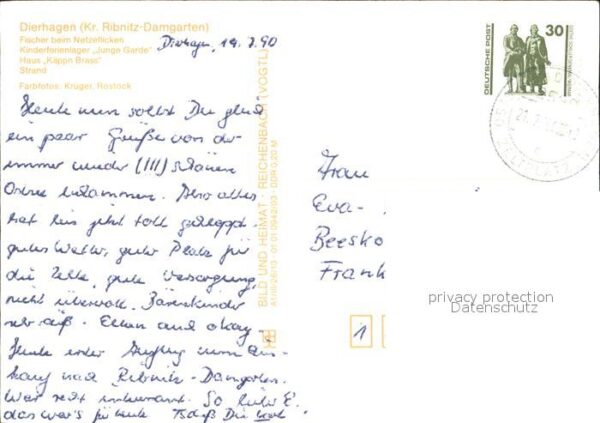 Dierhagen (Kr. Ribnitz-Damgarten)
Fischer beim Netzeflicken
Kinderferienlager „Junge Garde"
Haus „Käppn Brass"
Strand
Farbfotos: Krüger, Rostock
Dierhagen, 19.7.90
Heute nun sollst Du gleich
ein paar Grüße von der
immer wieder (!!!) schönen
Ostsee bekommen. Aber alles
hat bis jetzt toll geklappt.
gutes Wetter, guter Platz für
die Zelte, gute Versorgung,
nicht übervoll. Bärenkinder
sehr süß. Eltern auch okay.
Heute erster Ausflug zum Ein-
kauf nach Ribnitz-Damgarten.
War recht interessant. So liebe E.
das war's für heute Tschüß Die
BILD UND HEIMAT · REICHENBACH (VOGTL)
DDR 0,20 M
DEUTSCHE POST
30
Frau
Eva-
Beesko
Frank
privacy protection
Datenschutz
1